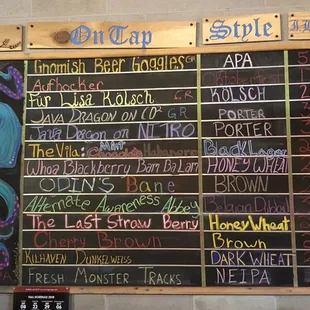 On Tap Style
Gnomish Beer Goggles APA
Aufhocker
Für Lisa Kölsch KÖLSCH
JAVA DRAGON ON CO² PORTER
JAVA Dragon on NITRO PORTER
The Vila: Habanero Black Lager
Whoa Blackberry Bam Ba Lam HONEY WHEAT
ODIN'S Bane BROWN
Alternate Awareness Abbey Belgian Dubbel
The Last Straw Berry Honey Wheat
Cherry Brown Brown
KILHAVEN DUNKELWEISS DARK WHEAT
FRESH MONSTER TRACKS NEIPA